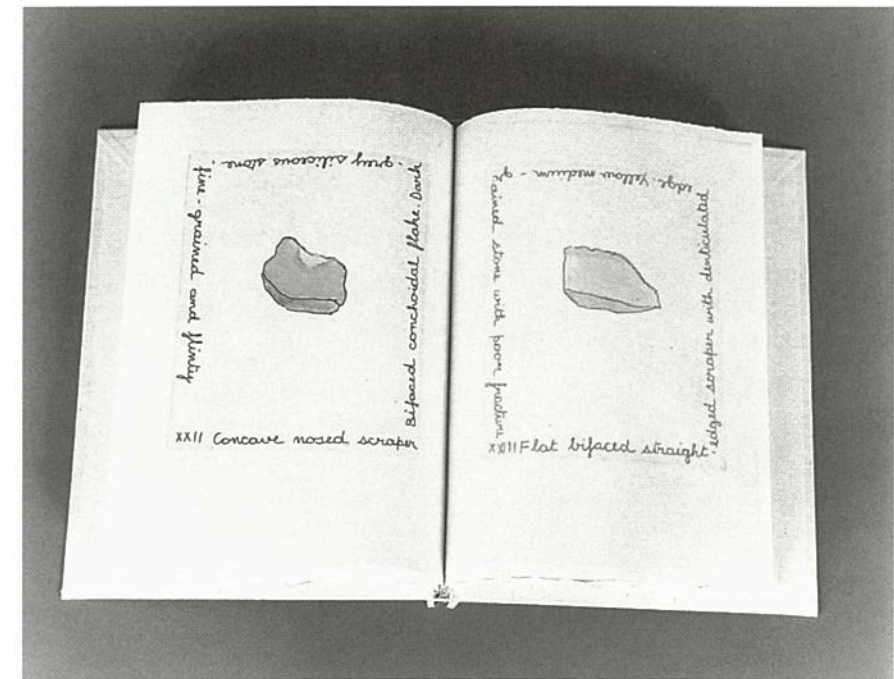 XXII Concave nosed scraper
Bifaced conchoidal flake. Dark
- grey siliceous stone.
fine - grained and flinty
XXIII Flat bifaced straight.
edged scraper with denticulated
edge. Yellow medium - g
rained stone with poor fracture